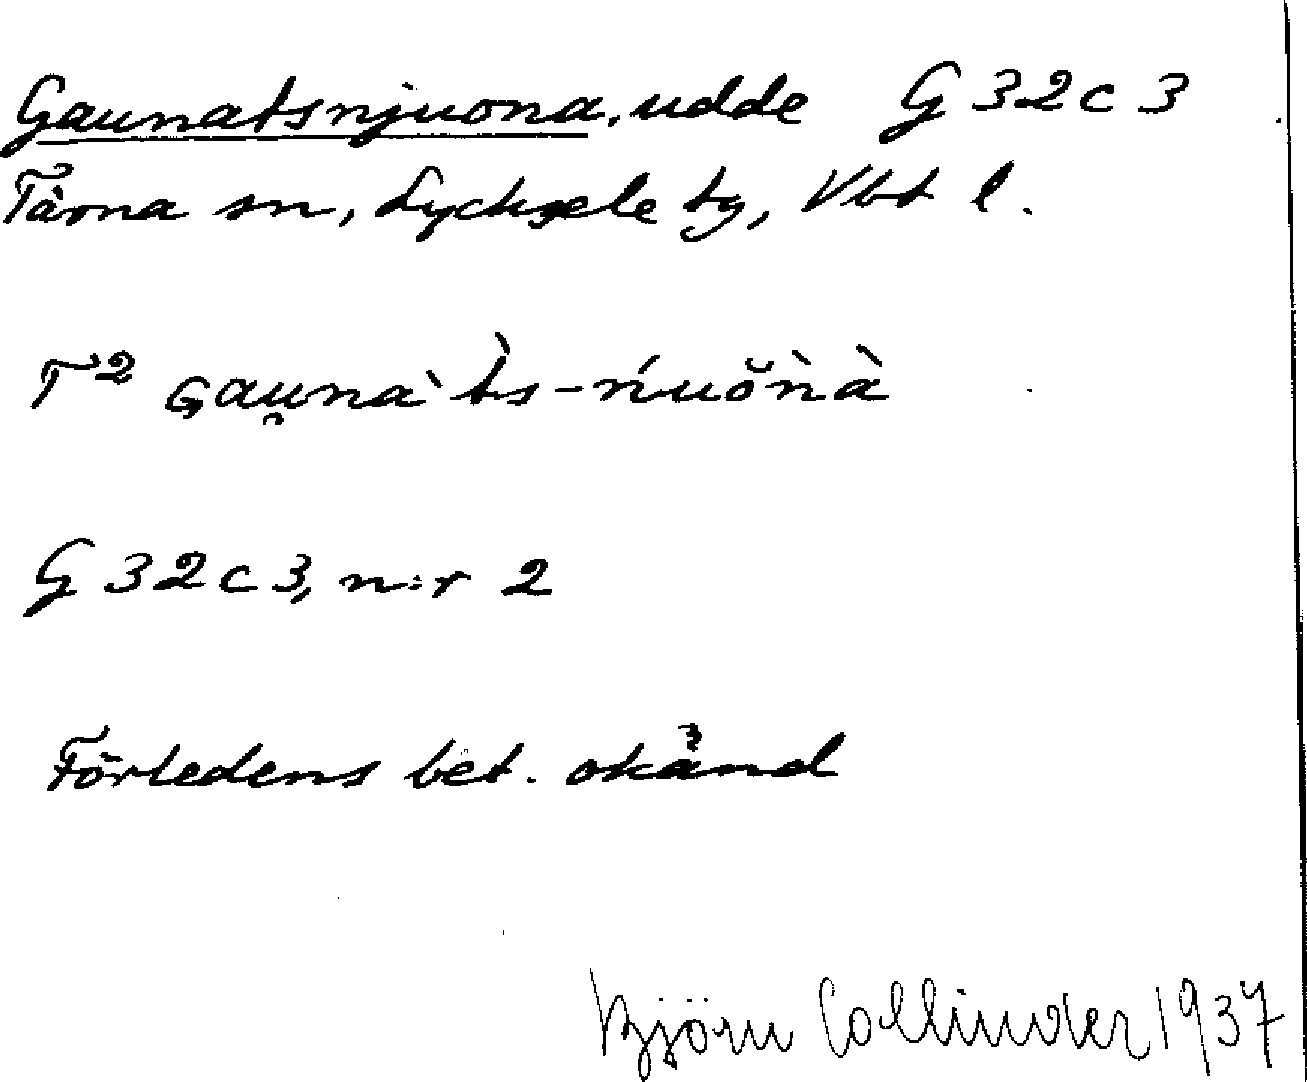 Gaunatsnjuona, udde G 32 c 3
Tärna sn, Lycksele tg, Vbt l.
T² Gau̯naˋt̀s-ńuŏǹà
G 32 c 3, n:r 2
Förledens bet. okänd
Björn Collinder 1937